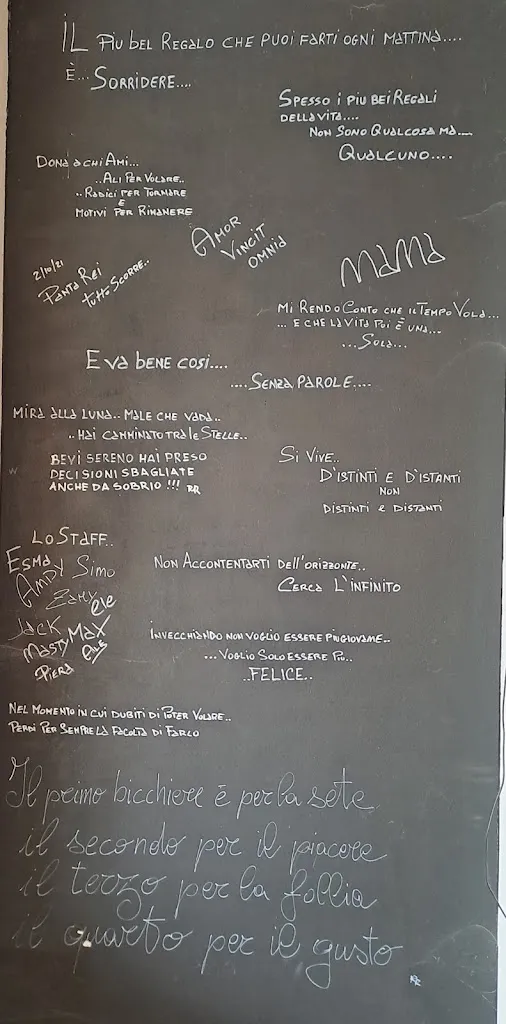 IL PIU BEL REGALO CHE PUOI FARTI OGNI MATTINA....
È... SORRIDERE....
SPESSO I PIU BEI REGALI
DELLA VITA....
NON SONO QUALCOSA MA....
QUALCUNO....
DONA A CHI AMI...
..ALI PER VOLARE..
..RADICI PER TORNARE
E
MOTIVI PER RIMANERE
AMOR
VINCIT
OMNIA
2/10/21
PANTA REI
TUTTO SCORRE..
MAMA
MI RENDO CONTO CHE IL TEMPO VOLA...
... E CHE LA VITA POI È UNA...
...SOLA...
E VA BENE COSI....
....SENZA PAROLE....
MIRA ALLA LUNA.. MALE CHE VADA..
..HAI CAMMINATO TRA LE STELLE..
BEVI SERENO HAI PRESO
DECISIONI SBAGLIATE
ANCHE DA SOBRIO !!! RR
SI VIVE..
D'ISTINTI E D'ISTANTI
NON
DISTINTI E DISTANTI
LO STAFF..
ESMA
ANDY SIMO
ZAMY
ele
JACK
MASTY MAX
PIERA
NON ACCONTENTARTI DELL'ORIZZONTE..
CERCA L'INFINITO
INVECCHIANDO NON VOGLIO ESSERE PIUGIOVAME..
...VOGLIO SOLO ESSERE PIÙ..
..FELICE..
NEL MOMENTO IN CUI DUBITI DI POTER VOLARE..
PERDI PER SEMPRE LA FACOLTA DI FARLO
Il primo bicchiere è per la sete
il secondo per il piacere
il terzo per la follia
il quarto per il gusto
RR